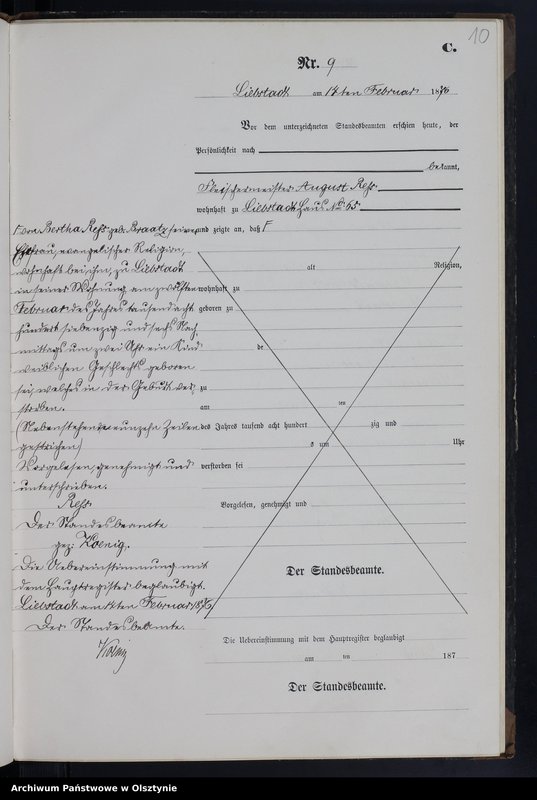 10
C.
Nr. 9
Liebstadt am 14ten Februar 1876
Vor dem unterzeichneten Standesbeamten erschien heute, der
Persönlichkeit nach
bekannt,
Fleischermeister August Rehs
wohnhaft zu Liebstadt Haus No 65
und zeigte an, daß
von Bertha Rehs geb. Braatz seiner
Ehefrau, evangelischer Religion,
wohnhaft bei ihm, zu Liebstadt
in seiner Wohnung am zwölften
Februar des Jahres tausend acht
hundert siebenzig und sechs Nach
mittags um zwei Uhr ein Kind
weiblichen Geschlechts geboren
sei, welches in der Geburt ver,
storben.
(Nebenstehende neunzehn Zeilen
gestrichen)
Vorgelesen, genehmigt und
unterschrieben.
Rehs
Der Standesbeamte
gez: Koenig.
Die Uebereinstimmung mit
dem Hauptregister beglaubigt.
Liebstadt am 14ten Februar 1876
Der Standesbeamte.
Koenig
alt Religion,
wohnhaft zu
geboren zu
de
zu
am ten
des Jahres tausend acht hundert zig und
s um Uhr
verstorben sei
Vorgelesen, genehmigt und
Der Standesbeamte.
Die Uebereinstimmung mit dem Hauptregister beglaubigt
am ten 187
Der Standesbeamte.
Archiwum Państwowe w Olsztynie